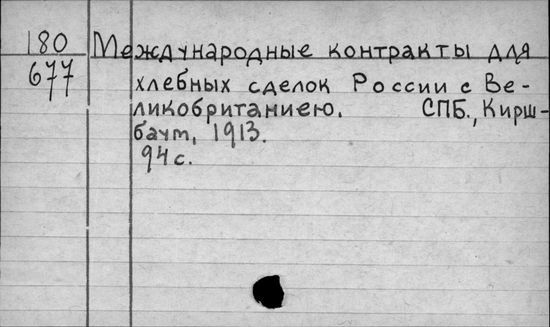 180 Международные контракты для
677 хлебных сделок России с Ве-
ликобританиею. СПБ., Кирш-
баум, 1913.
94 с.